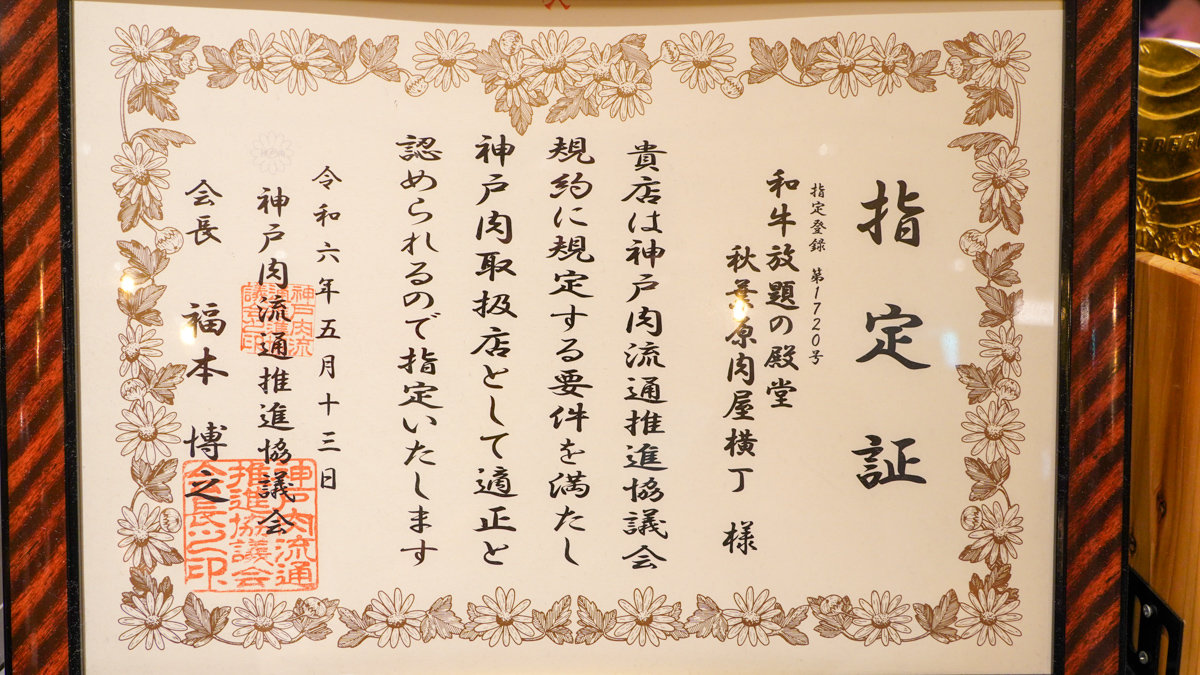 指定証
指定登録 第1720号
和牛放題の殿堂
秋葉原肉屋横丁 様
貴店は神戸肉流通推進協議会
規約に規定する要件を満たし
神戸肉取扱店として適正と
認められるので指定いたします
令和六年五月十三日
神戸肉流通推進協議会
会長 福本 博之
神戸肉流通
推進協議会
会長之印